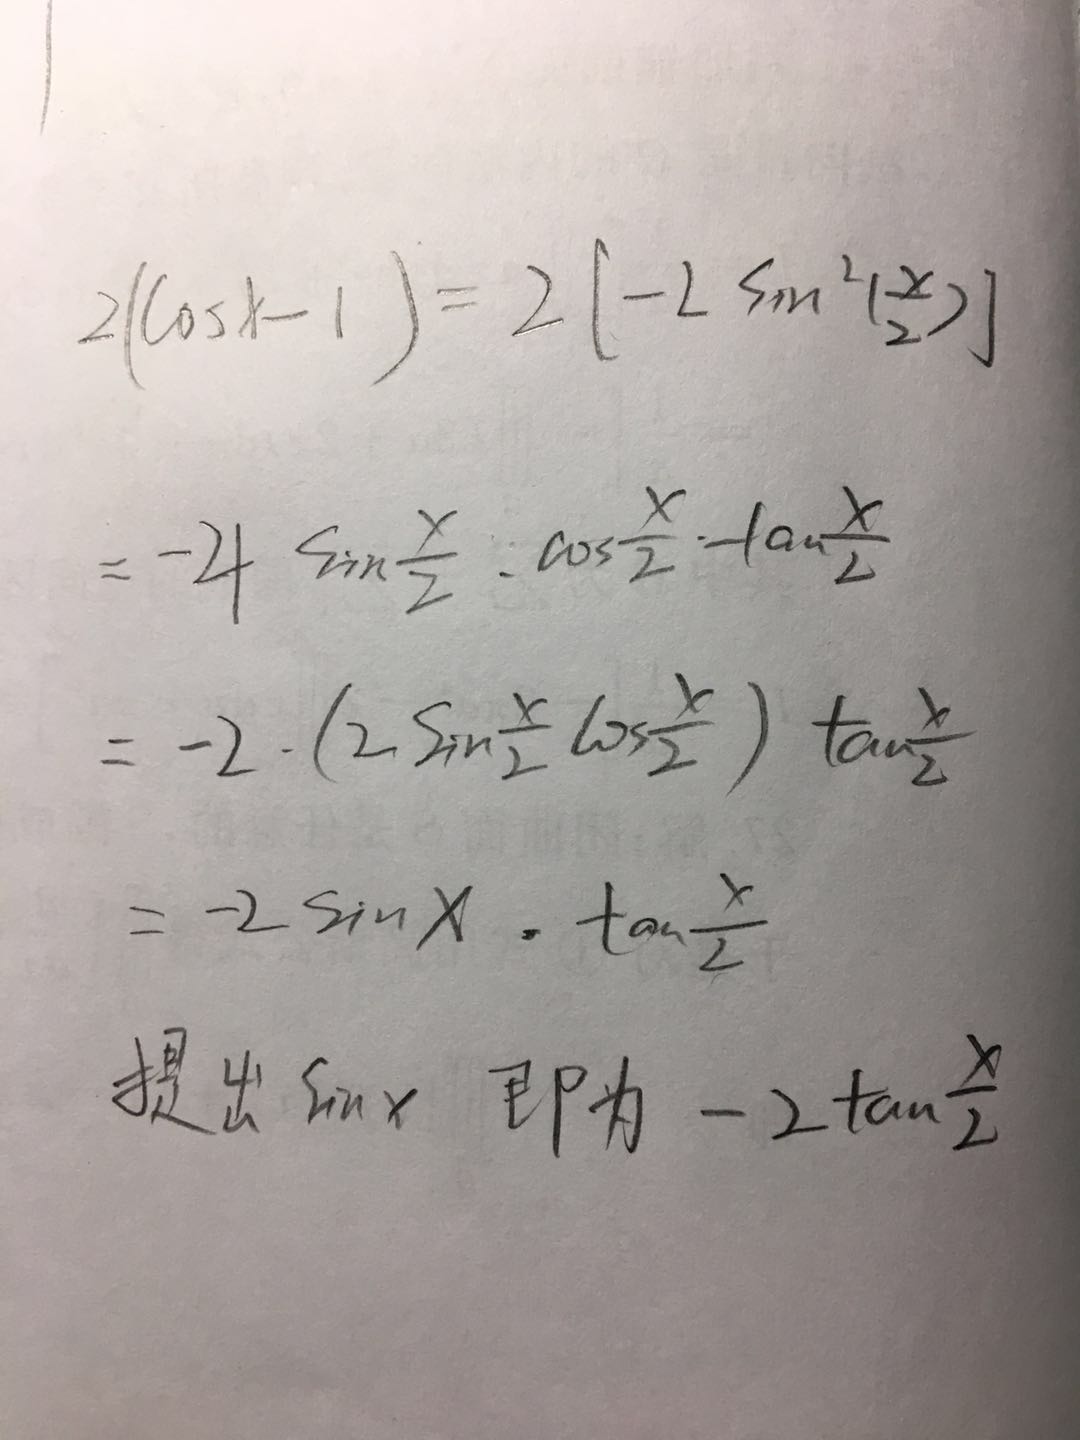 2(cosx-1)=2[-2 sin²(x/2)]
=-4 sin x/2 · cos x/2 · tan x/2
=-2·(2 sin x/2 cos x/2) tan x/2
=-2 sin x · tan x/2
提出 sin x 即为 -2 tan x/2